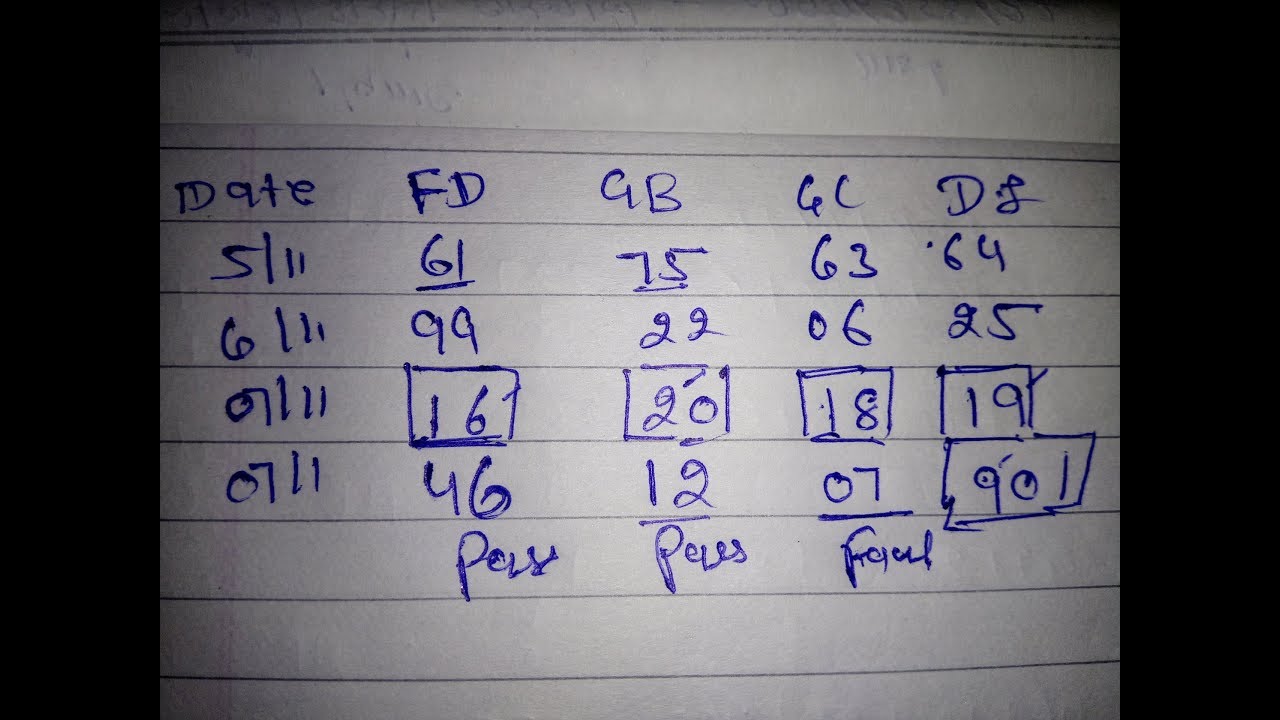 Date FD GB GC DS
5/11 61 75 63 64
6/11 99 22 06 25
07/11 16 20 18 19
07/11 46 12 07 901
Pass Pass Faul